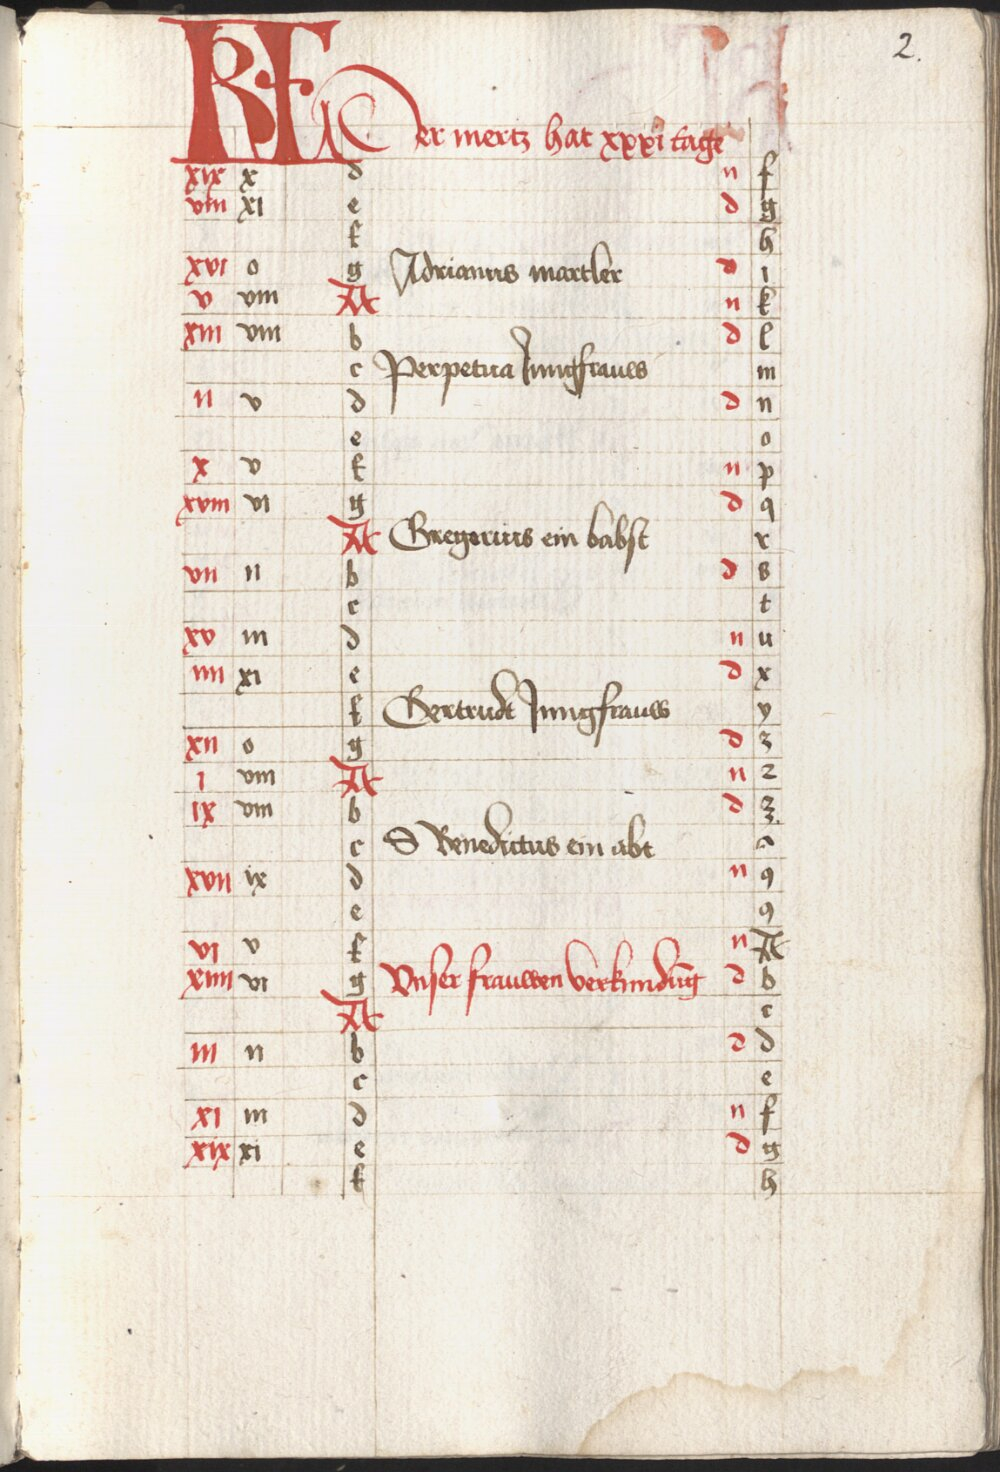 2.
KL Der mertz hat xxxi tage
xix x d n f
viii xi e d g
f h
xvi o g Adrianus martler d i
v viii A n k
xiii viii b d l
c Perpetua Jungfrauw m
ii v d d n
e o
x v f n p
xviii vi g d q
A Gregorius ein babst r
vii ii b d s
c t
xv iii d n u
iiii xi e d x
f Gertrudt Jungfrauw y
xii o g d z
i viii A n 2
ix viii b d 3
c S Benedictus ein abt
xvii ix d n 9
e 9
vi v f n A
xiiii vi g Vnser frauwen verkundūg d b
A c
iii ii b d d
c e
xi iii d n f
xix xi e d g
f h